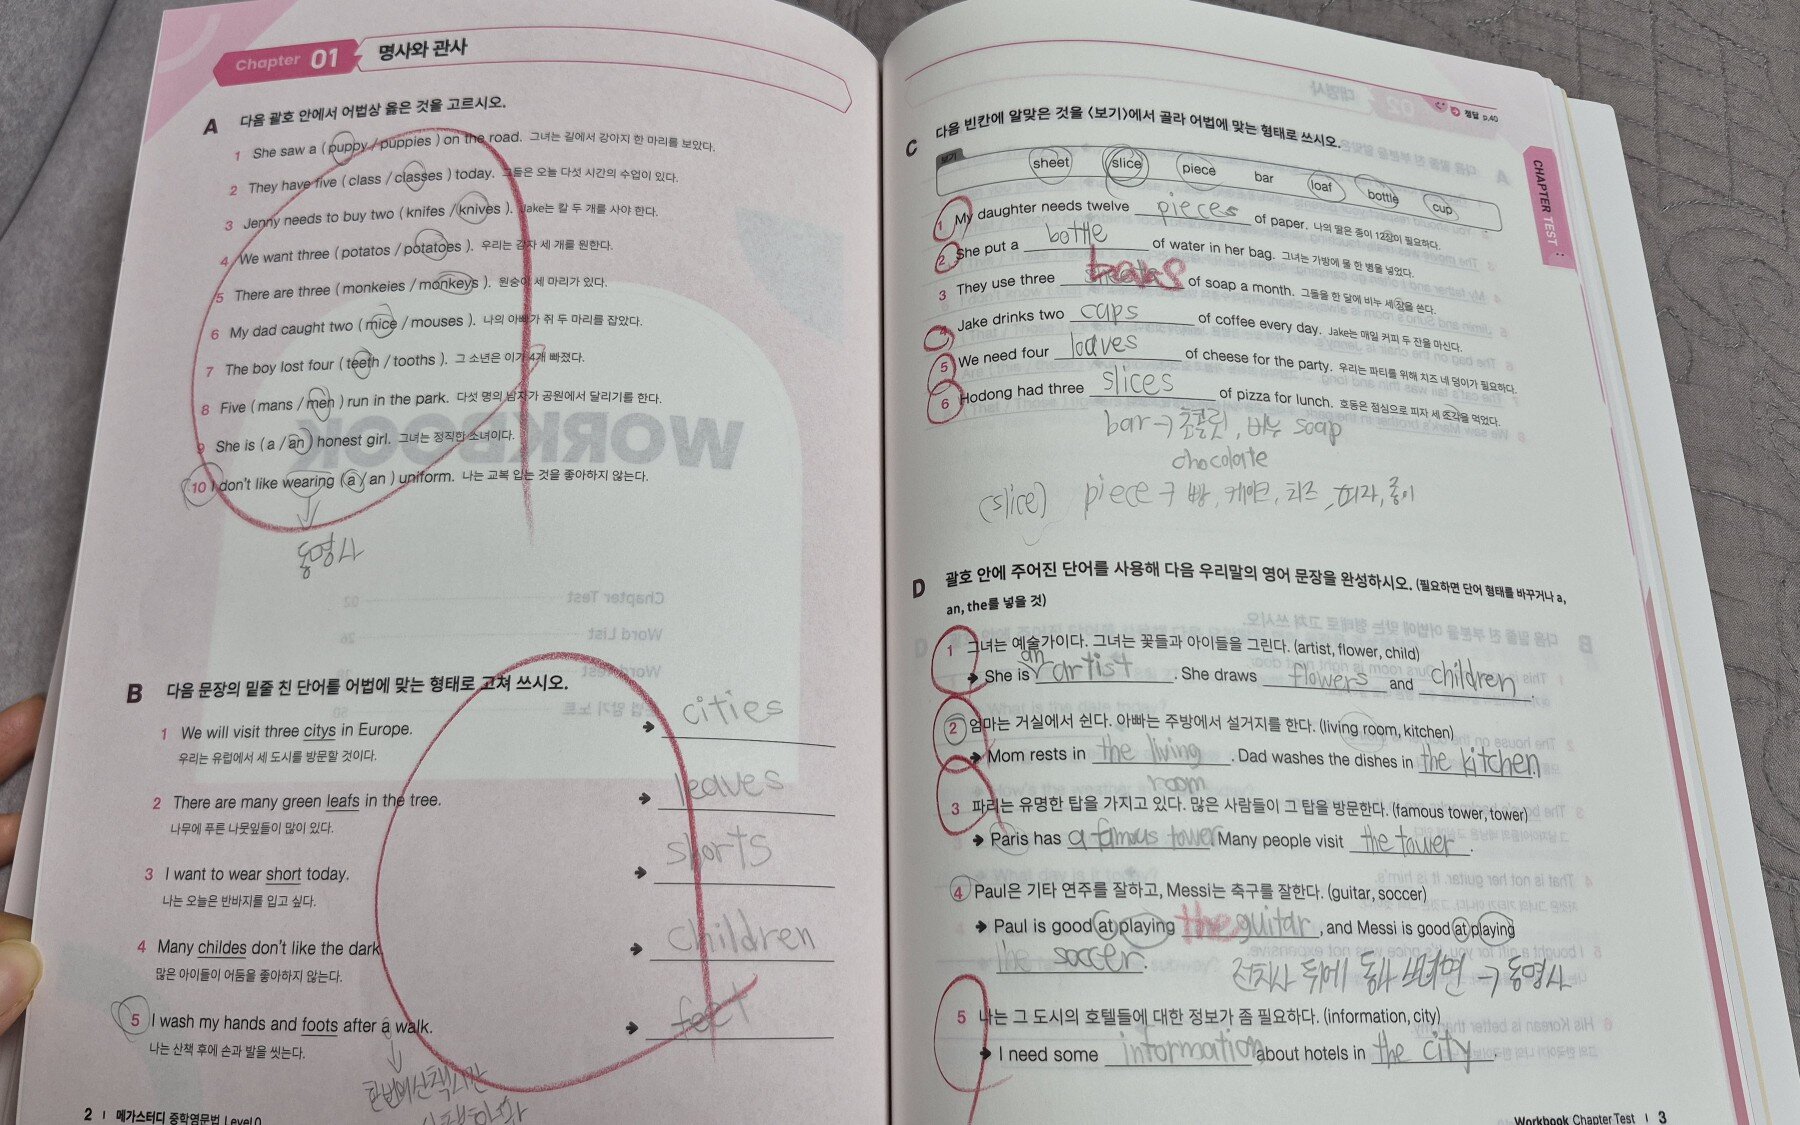 Chapter 01 명사와 관사
A 다음 괄호 안에서 어법상 옳은 것을 고르시오.
1 She saw a ( puppy / puppies ) on the road. 그녀는 길에서 강아지 한 마리를 보았다.
2 They have five ( class / classes ) today. 그들은 오늘 다섯 시간의 수업이 있다.
3 Jenny needs to buy two ( knifes / knives ). Jake는 칼 두 개를 사야 한다.
4 We want three ( potatos / potatoes ). 우리는 감자 세 개를 원한다.
5 There are three ( monkeies / monkeys ). 원숭이 세 마리가 있다.
6 My dad caught two ( mice / mouses ). 나의 아빠가 쥐 두 마리를 잡았다.
7 The boy lost four ( teeth / tooths ). 그 소년은 이가 4개 빠졌다.
8 Five ( mans / men ) run in the park. 다섯 명의 남자가 공원에서 달리기를 한다.
9 She is ( a / an ) honest girl. 그녀는 정직한 소녀이다.
10 I don't like wearing ( a / an ) uniform. 나는 교복 입는 것을 좋아하지 않는다.
동명사
WORKBOOK
Chapter Test 02
Word List 26
Word Test
B 다음 문장의 밑줄 친 단어를 어법에 맞는 형태로 고쳐 쓰시오.
1 We will visit three citys in Europe. → cities
우리는 유럽에서 세 도시를 방문할 것이다.
2 There are many green leafs in the tree. → leaves
나무에 푸른 나뭇잎들이 많이 있다.
3 I want to wear short today. → shorts
나는 오늘은 반바지를 입고 싶다.
4 Many childes don't like the dark. → children
많은 아이들이 어둠을 좋아하지 않는다.
5 I wash my hands and foots after a walk. → feet
나는 산책 후에 손과 발을 씻는다.
한번에 산책시만
2 | 메가스터디 중학영문법 Level 0
정답 p.40
CHAPTER TEST
C 다음 빈칸에 알맞은 것을 <보기>에서 골라 어법에 맞는 형태로 쓰시오.
보기 sheet slice piece bar loaf bottle cup
1 My daughter needs twelve pieces of paper. 나의 딸은 종이 12장이 필요하다.
2 She put a bottle of water in her bag. 그녀는 가방에 물 한 병을 넣었다.
3 They use three bars of soap a month. 그들을 한 달에 비누 세 장을 쓴다.
4 Jake drinks two cups of coffee every day. Jake는 매일 커피 두 잔을 마신다.
5 We need four loaves of cheese for the party. 우리는 파티를 위해 치즈 네 덩이가 필요하다.
6 Hodong had three slices of pizza for lunch. 호동은 점심으로 피자 세 조각을 먹었다.
bar → 초콜릿, 비누 soap
chocolate
(slice) piece → 빵, 케이크, 치즈, 피자, 종이
D 괄호 안에 주어진 단어를 사용해 다음 우리말의 영어 문장을 완성하시오. (필요하면 단어 형태를 바꾸거나 a,
an, the를 넣을 것)
1 그녀는 예술가이다. 그녀는 꽃들과 아이들을 그린다. (artist, flower, child)
→ She is an artist . She draws flowers and children .
2 엄마는 거실에서 쉰다. 아빠는 주방에서 설거지를 한다. (living room, kitchen)
→ Mom rests in the living room . Dad washes the dishes in the kitchen.
3 파리는 유명한 탑을 가지고 있다. 많은 사람들이 그 탑을 방문한다. (famous tower, tower)
→ Paris has a famous tower. Many people visit the tower .
4 Paul은 기타 연주를 잘하고, Messi는 축구를 잘한다. (guitar, soccer)
→ Paul is good at playing the guitar , and Messi is good at playing
the soccer.
전치사 뒤에 동사 쓰려면 → 동명사
5 나는 그 도시의 호텔들에 대한 정보가 좀 필요하다. (information, city)
→ I need some information about hotels in the city .
Workbook Chapter Test | 3